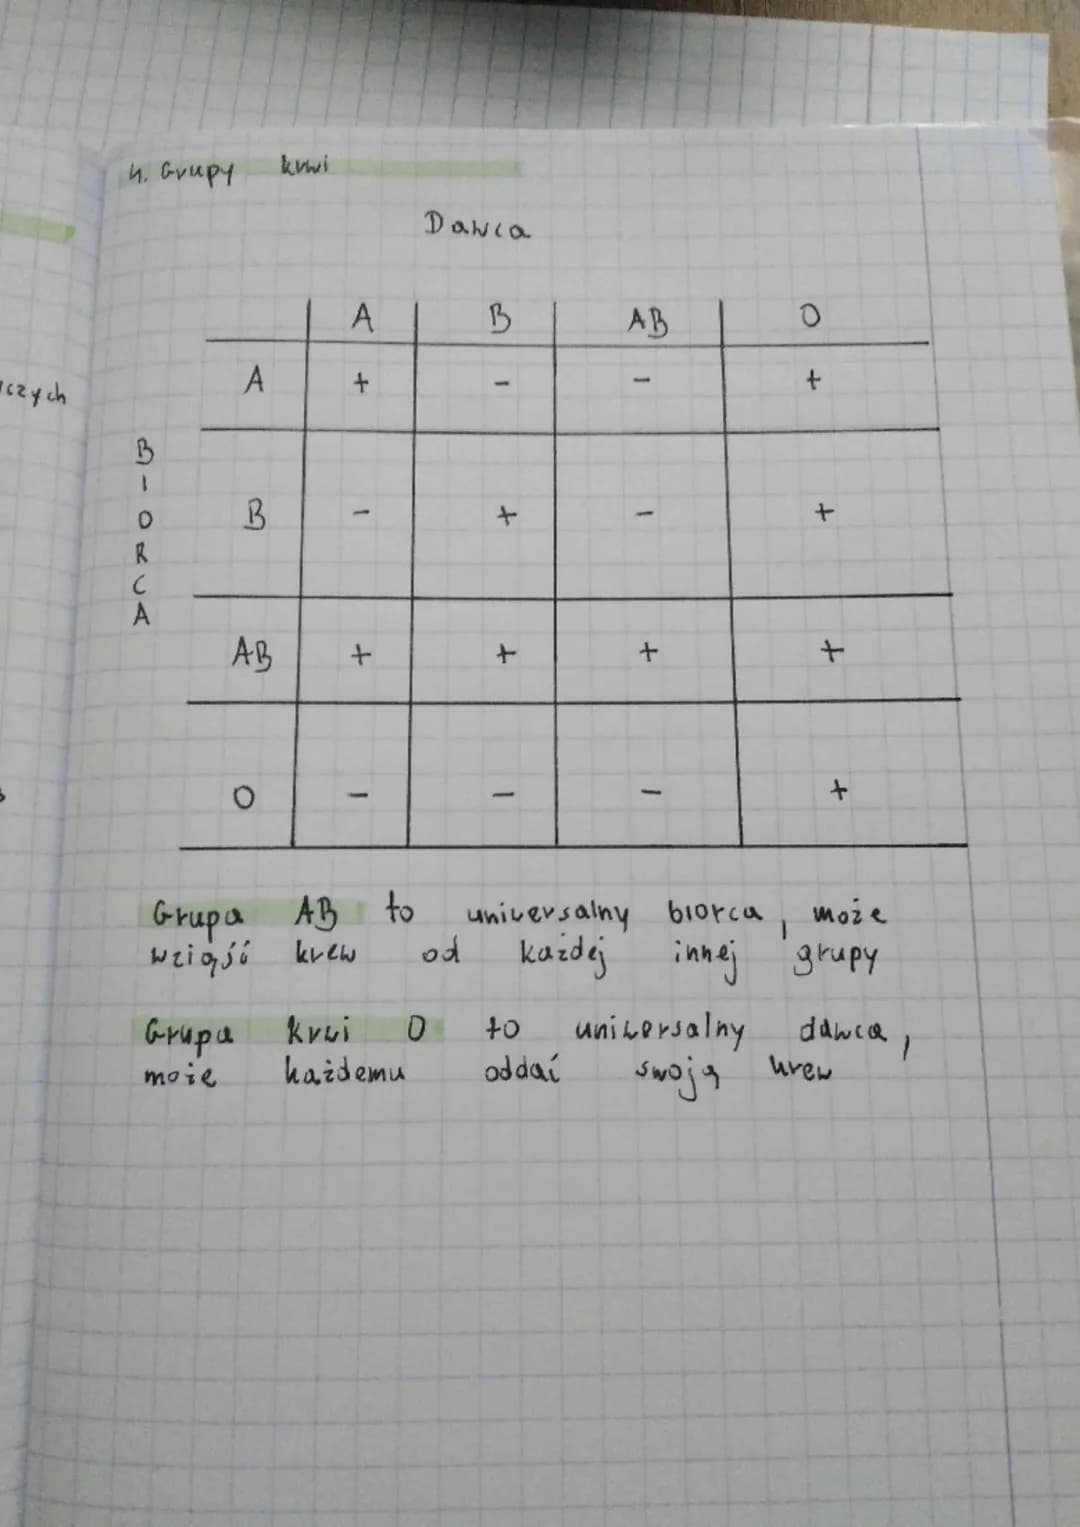 4. Grupy krwi
Dawca
A B AB O
A + - - +
B - + - +
AB + + + +
O - - - +
BIORCA
czych
Grupa AB to uniwersalny biorca, może
wziąść krew od każdej innej grupy
Grupa krwi O to uniwersalny dawca,
może każdemu oddać swoją krew